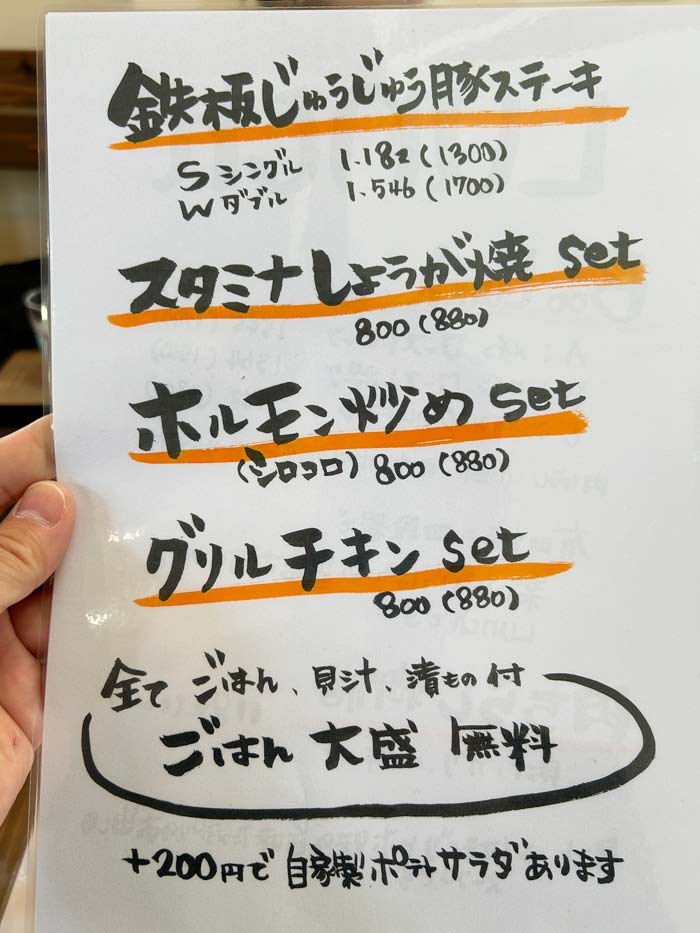 鉄板じゅうじゅう豚ステーキ
S シングル 1.182(1300)
W ダブル 1.546(1700)
スタミナしょうが焼 set
800(880)
ホルモン炒め set
(シロコロ) 800(880)
グリルチキン set
800(880)
全て ごはん、貝汁、漬もの付
ごはん 大盛 無料
+200円で 自家製ポテトサラダあります